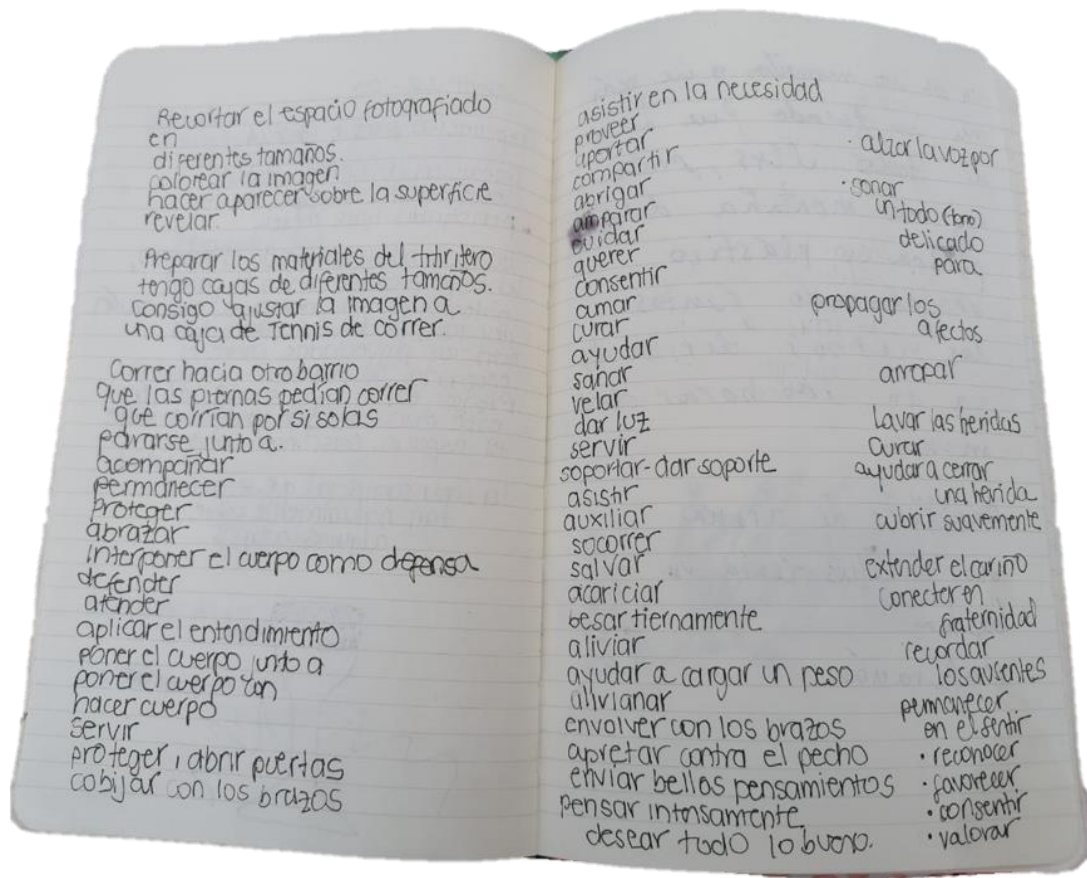 Recortar el espacio fotografiado
en
diferentes tamaños.
colorear la imagen
hacer aparecer sobre la superficie
revelar.
Preparar los materiales del titiritero
tengo cajas de diferentes tamaños.
consigo ajustar la imagen a
una caja de Tennis de correr.
Correr hacia otro barrio
que las piernas pedían correr
que corrían por si solas
pararse junto a.
acompañar
permanecer
proteger
abrazar
interponer el cuerpo como defensa
defender
atender
aplicar el entendimiento
poner el cuerpo junto a
poner el cuerpo con
hacer cuerpo
servir
proteger, abrir puertas
cobijar con los brazos
asistir en la necesidad
proveer
aportar
compartir
abrigar
amparar
cuidar
querer
consentir
amar
curar
ayudar
sanar
velar
dar luz
servir
soportar-dar soporte
asistir
auxiliar
socorrer
salvar
acariciar
besar tiernamente
aliviar
ayudar a cargar un peso
alivianar
envolver con los brazos
apretar contra el pecho
enviar bellos pensamientos
pensar intensamente
desear todo lo bueno.
· alzar la voz por
· sonar
un todo (tono)
delicado
para
propagar los
afectos
arropar
Lavar las heridas
Curar
ayudar a cerrar
una herida
cubrir suavemente
extender el cariño
conecter en
fraternidad
recordar
los ausentes
permanecer
en el sentir
· reconocer
· favorecer
· consentir
· valorar